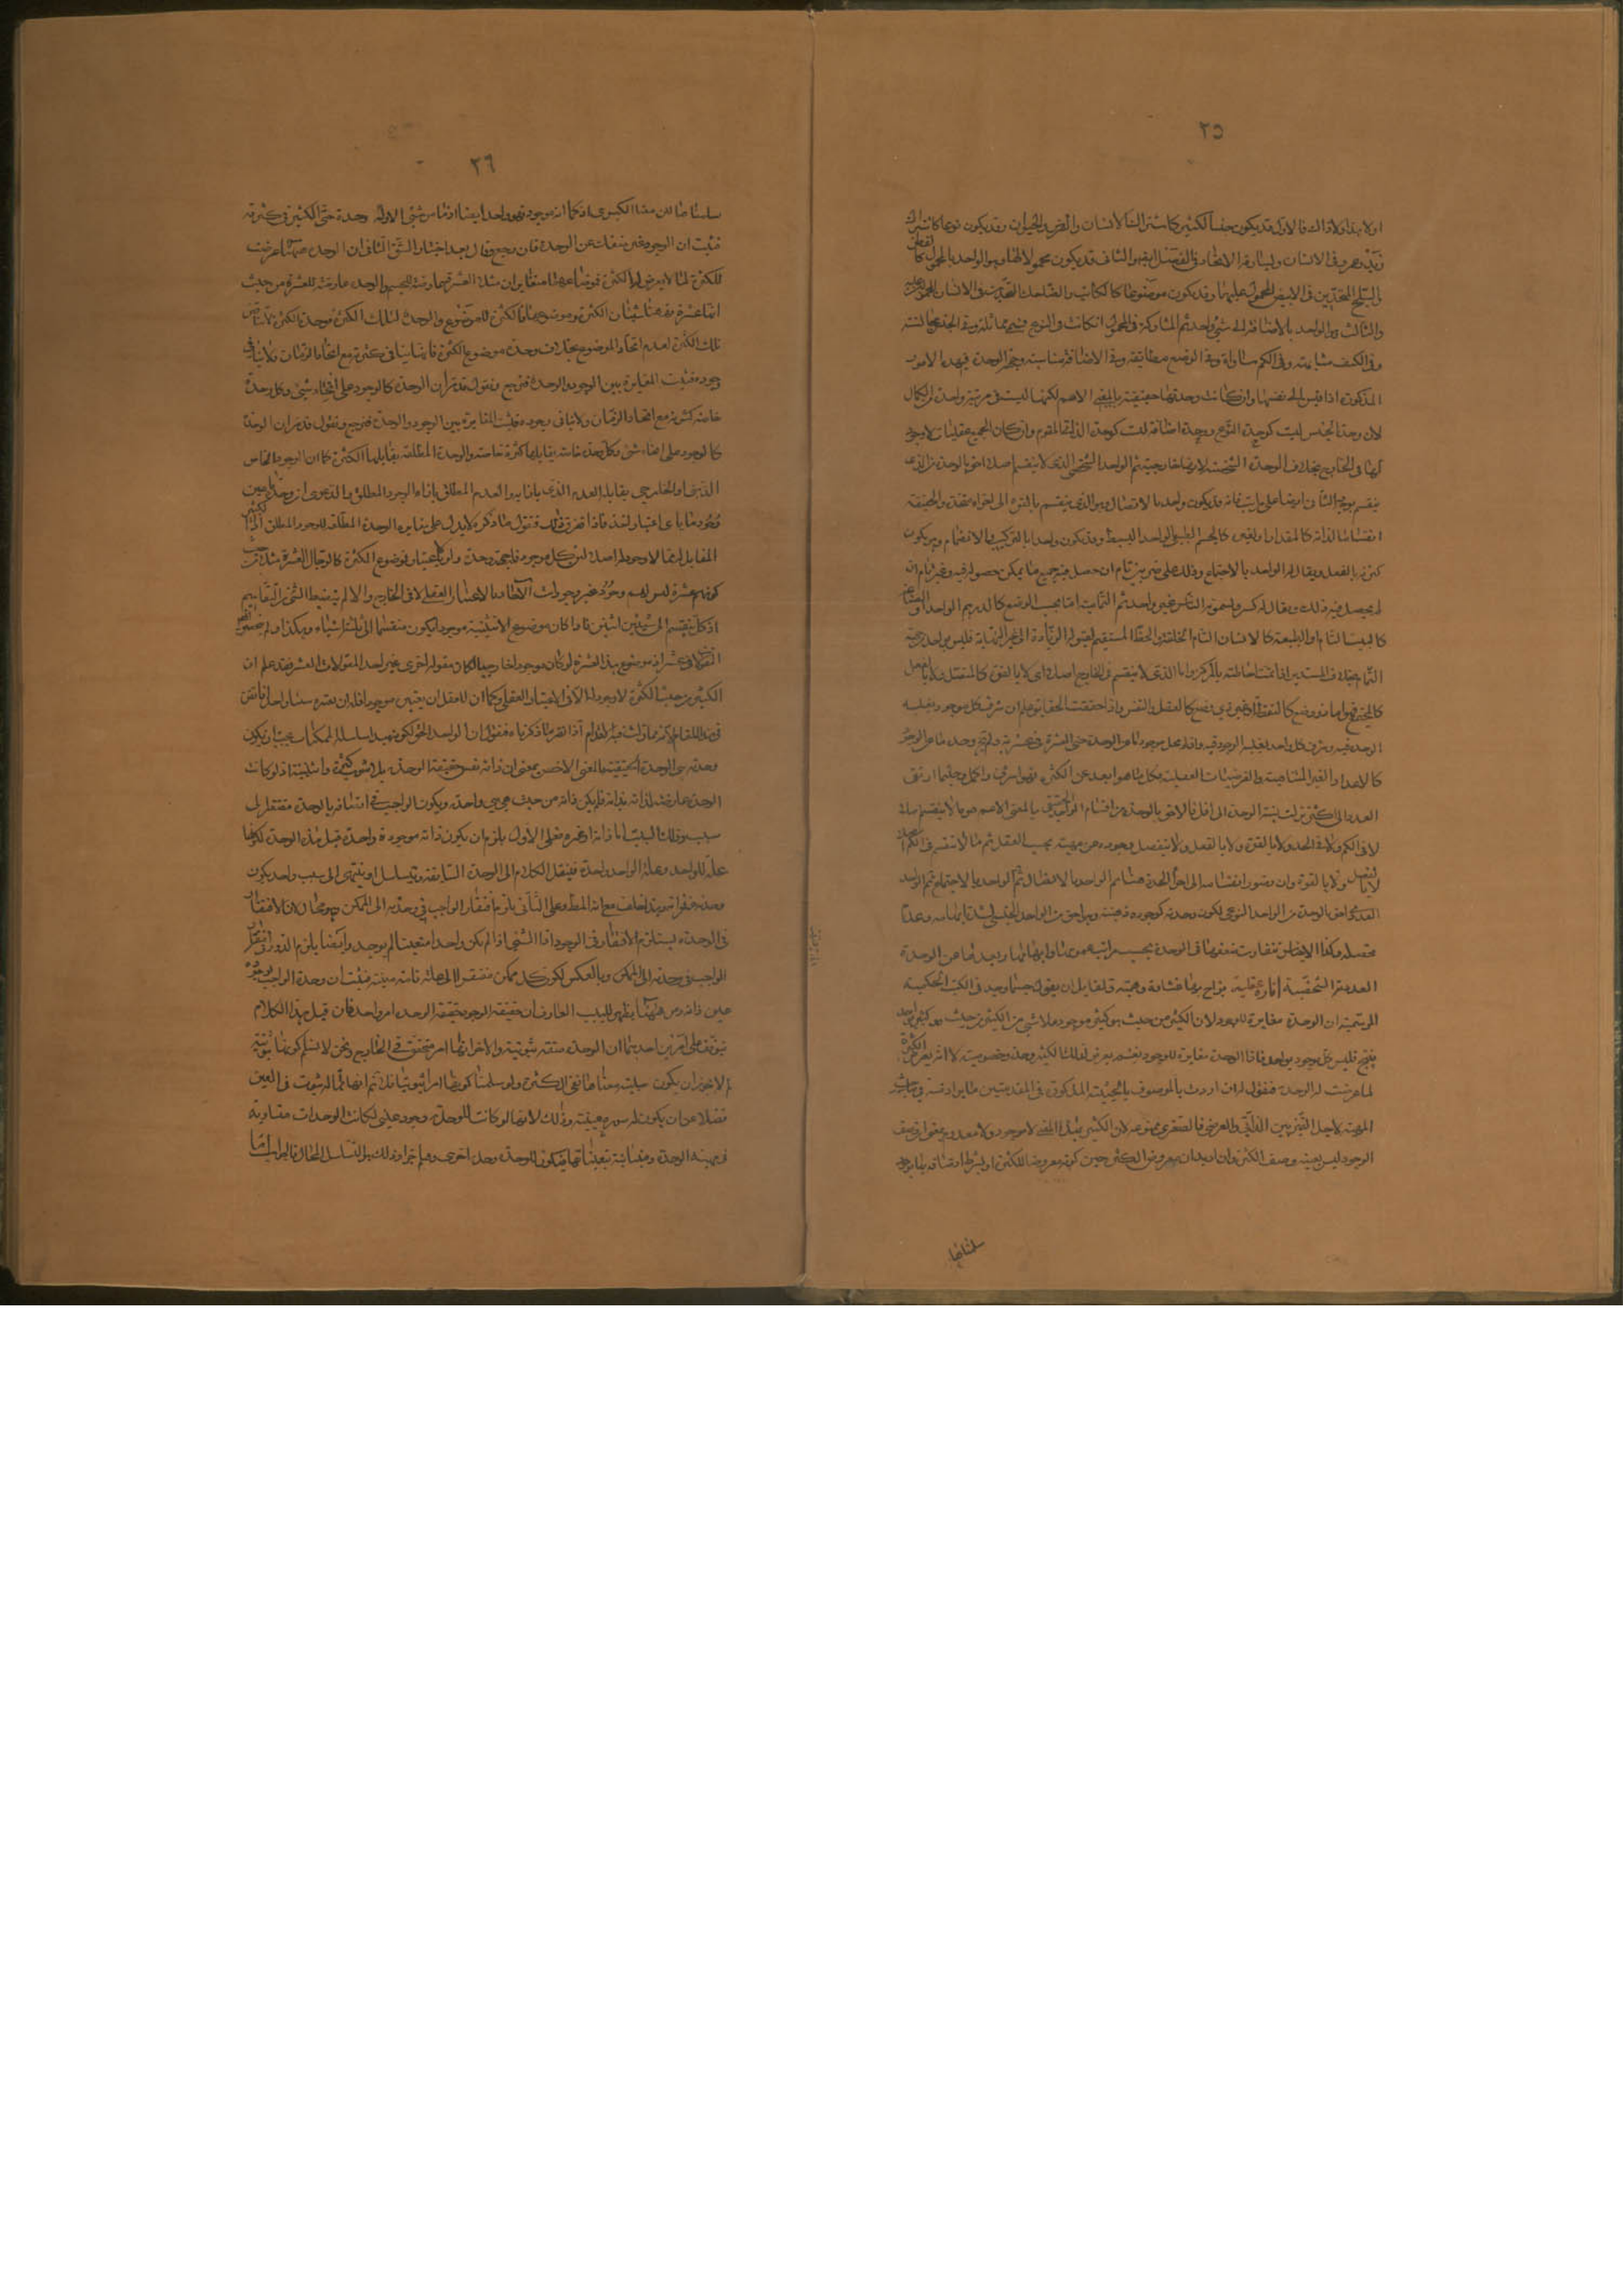 ٢٥
اولا بذا ولا ذاك فالاول قد يكون جنسا لكثير كاشتراك الانسان والفرس في الحيوان وقد يكون نوعا كاشتراك
زيد وعمرو في الانسان ويساوقه الاتحاد في الفصل ايضا والثاني قد يكون محمولا لها وهو الواحد بالمحمول كالقطن
والثلج المتحدين في الابيض المحمول عليهما وقد يكون موضوعا كالكاتب والضاحك المتحدين في الانسان المحمول عليه
والثالث هو الواحد بالاضافة الى شيء واحد ثم المشاركة في المحمول ان كانت في النوع فهي مماثلة وفي الجنس مجانسة
وفي الكيف مشابهة وفي الكم مساواة وفي الوضع مطابقة وفي الاضافة مناسبة وجهة الوحدة في هذه الامور
المذكورة اذا قيس الى نفسها وان كانت وحدتها حقيقية بالمعنى الاعم لكنها ليست في مرتبة واحدة في الكمال
لان وحدة الجنس ليست كوحدة النوع ووحدة اضافة ليست كوحدة الذات المقوم وان كان الجميع عقليات لا وجود
لها في الخارج بخلاف الوحدة الشخصية لانها خارجية ثم الواحد الشخصي الذي لا ينقسم اصلا احق بالوحدة من الذي
ينقسم بوجه الثاني ايضا على مراتب فانه قد يكون واحدا بالاتصال وهو الذي ينقسم بالقوة الى اجزاء متحدة والحقيقة
انقساما لذاته كالمقدار او لغيره كالجسم الطبيعي الواحد البسيط وقد يكون واحدا بالتركيب والانضمام وهو يكون
كثرته بالفعل ويقال له الواحد بالاجتماع وذلك على ضربين تام ان حصل فيه جميع ما يمكن حصوله فيه وغير تام ان
لم يحصل فيه ذلك ويقال له كسر ويسمونه الناس غير واحد ثم التمامية اما بحسب الوضع كالدرهم الواحد او الصناعة
كالبيت التام او الطبيعة كالانسان التام الخلقة والخط المستقيم لقبوله الزيادة الى غير النهاية فليس بواحد من جهة
التمام بخلاف المستدير اذا تمت احاطته بالمركز واما الذي لا ينقسم في الخارج اصلا اي لا بالقوة كالمتصل ولا بالفعل
كالمجتمع فهو اما ذو وضع كالنقطة او غير ذي وضع كالعقل والنفس واذا حققت الحقايق علم ان شرف كل موجود بغلبة
الوحدة فيه وشرف كل واحد بغلبة الوجود فيه وانه لم يخل موجود ما عن الوحدة حتى العشرة في عشريته ولم يخل وحدة ما عن الوجود
كالاعداد الغير المتناهية والفرضيات العقلية فكل ما هو ابعد عن الكثرة فهو اشرف واكمل وحيثما ارتقى
العدد الى اكثر نزلت نسبة الوحدة الى اقل فالاحق بالوحدة من اقسام الواحد الحقيقي بالمعنى الاعم هو ما لا ينقسم اصلا
لا في الكم ولا في الحد ولا بالقوة ولا بالفعل ولا ينفصل وجوده عن مهيته بحسب العقل ثم ما لا ينقسم في الكم اصلا
لا بالفعل ولا بالقوة وان تصور انقسامه الى اجزاء الحد ثم الواحد بالاتصال ثم الواحد بالاجتماع ثم الواحد
العددي احق بالوحدة من الواحد النوعي لكون وحدته كوجوده ذهنية وهو احق من الواحد الجنسي لشدة ابهامه وعدم
تحصله وكذا الاجناس متفاوتة في الوحدة بحسب مراتب عمومها وابهامها وبعدها عن الوحدة
العددية الشخصية انارة عقلية يزاح بها غشاوة وهمية ولقايل ان يقول حسبما وجد في الكتب الحكمية
المرسمية ان الوحدة مغايرة للوجود لان الكثير من حيث هو كثير موجود ولا شيء من الكثير من حيث هو كثير بواحد
ينتج فليس كل موجود بواحد فاذا الوحدة مغايرة للوجود نعم يعرض لذلك الكثير وحدة وخصوصية لا انه يعرض الكثرة
لما عرضت له الوحدة فنقول له ان اردت بالموصوف بالحيثية المذكورة في المقدمتين ما يراد منه في مباحث
المهية لاجل التميز بين الذاتي والعرضي فالصغرى ممنوعة لان الكثير بهذا المعنى لا موجود ولا معدوم بمعنى ان وصف
الوجود ليس بعينه وصف الكثرة وان اريد ان معروض الكثرة حين كونه معروضا للكثرة او بشرط اوصافه بها يوجد
سلمناها
٢٦
سلمناها لكن منعنا الكبرى اذ كما انه موجود فهو واحد ايضا اذ ما من شيء الا وله وحدة حتى الكثير في كثرته
فثبت ان الوجود غير منفك عن الوحدة فان رجع وقال بعد اختيار الشق الثاني ان الوحدة ههنا عرضت
للكثرة لا لما يعرض له الكثرة فموضوعاهما متغايران مثلا العشرة عارضة للجسم والوحدة عارضة للعشرة من حيث
انها عشرة فههنا شيئان الكثرة وموضوعها فالكثرة للموضوع والوحدة لتلك الكثرة فوحدة الكثرة لا تناقض
تلك الكثرة لعدم اتحاد الموضوع بخلاف وحدة موضوع الكثرة فانها ينافي كثرته مع اتحاد الزمان ولا ينافي
وجوده فثبت المغايرة بين الوجود والوحدة فنرجع ونقول قد مر ان الوحدة كالوجود على انحاء شتى وكل وحدة
خاصة كثرته مع اتحاد الزمان ولا ينافي وجوده فثبت المغايرة بين الوجود والوحدة فنرجع ونقول قد مر ان الوحدة
كالوجود على انحاء شتى وكل وحدة خاصة يقابلها كثرة خاصة والوحدة المطلقة يقابلها الكثرة كما ان الوجود الخاص
الذهني او الخارجي يقابله العدم الذي بازائه والعدم المطلق بازاء الوجود المطلق والدعوى ان وحدة ما عين
وجود ما باي اعتبار اخذ فاذا تقرر ذلك فنقول ما ذكره لا يدل على مغايرة الوحدة المطلقة للوجود المطلق اذ الكثير
المقابل لها لا وجود له اصلا لان كل موجود فله جهة وحدة ولو بالاعتبار فموضوع الكثرة كالرجال العشرة مثلا من حيث
كونهم عشرة ليس لهم وجود غير وجودات الآحاد الا بالاعتبار العقلي لا في الخارج والا لم ينضبط الشيء من التقاسيم
اذ كل ينقسم الى شيئين اثنين فاذا كان موضوع الاثنينية موجودا يكون منقسما الى ثلثة اشياء وهكذا
الكثير من حيث الكثرة لا وجود له الا في الاعتبار العقلي وكما ان للعقل ان يعتبره موجودا فله ان يعتبره شيئا واحدا
وحدته هي الوحدة الحقيقية بالمعنى الاخص بمعنى ان ذاته نفس حقيقة الوحدة بلا شوب كثرة واثنينية اذ لو كانت
الوحدة عارضة لذاته بذاته فلم يكن ذاته من حيث هي هي واحدة ويكون الواجب في اتصافه بالوحدة مفتقرا الى
سبب وذلك السبب اما ذاته او غيره فعلى الاول يلزم ان يكون ذاته موجودة واحدة قبل هذه الوحدة لكونها
علة للواحد وعلة الواحد واحدة فينقل الكلام الى الوحدة السابقة ويتسلسل او ينتهي الى سبب واحد يكون
وحدته نفس ذاته وهذا خلف مع انه المط وعلى الثاني يلزم افتقار الواجب في وحدته الى الممكن وهو محال لان الافتقار
في الوحدة يستلزم الافتقار في الوجود اذ الشيء اذا لم يكن واحدا متعينا لم يوجد وايضا يلزم الدور
الواجب في وحدته الى الممكن وبالعكس لكون كل ممكن مفتقرا الى علة تامة معينة فثبت ان وحدة الواجب كوجوده
عين ذاته ومن ههنا يظهر للبيب العارف ان حقيقة الوجود وحقيقة الوحدة امر واحد فان قيل هذا الكلام
يتوقف على امرين احدهما ان الوحدة صفة ثبوتية والاخر انها امر متحقق في الخارج ونحن لا نسلم كونها ثبوتية
لم لا يجوز ان يكون سلبية معناها نفي الكثرة ولو سلمنا كونها امرا ثبوتيا فلا نم انها مما له ثبوت في العين
فضلا عن ان يكون له صورة عينية وذلك لانها لو كانت للوحدة وجود عيني لكانت الوحدات متساوية
في مهية الوحدة ومتباينة بتعيناتها فيكون للوحدة وحدة اخرى وهلم جرا وذلك هو التسلسل المحال فالجواب اما